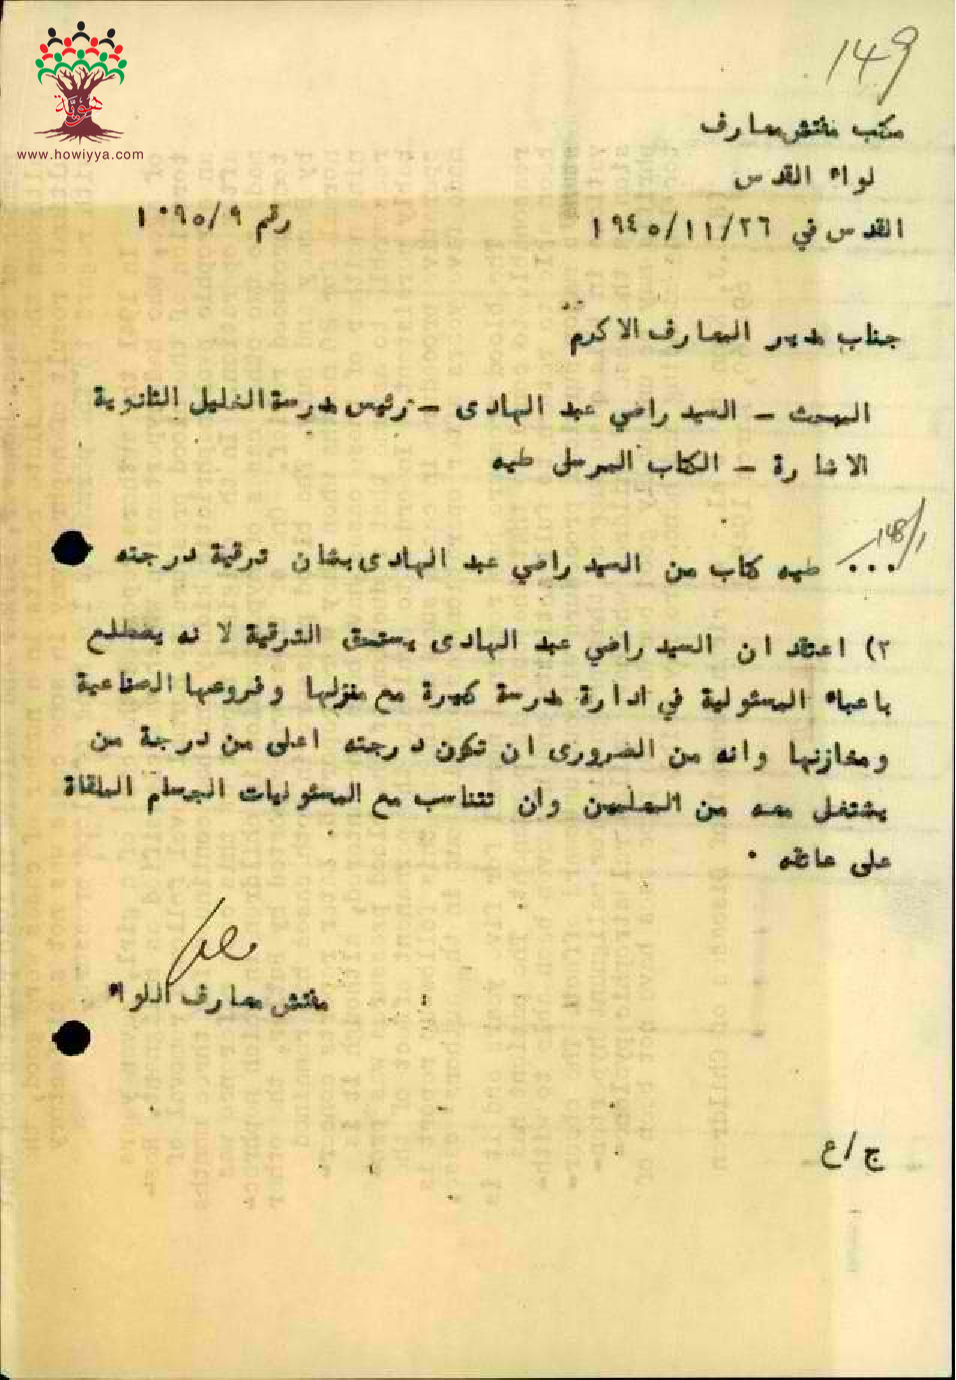 149
هوية
www.howiyya.com
مكتب مفتش معارف
لواء القدس
القدس في ٢٦/١١/١٩٤٥
رقم ١٠٩٥/٩
جناب مدير المعارف الاكرم
البحث – السيد راضي عبد الهادى – رئيس مدرسة الخليل الثانوية
الاشارة – الكتاب المرسل طيه
148/1
... طيه كتاب من السيد راضي عبد الهادى بشان ترقية درجته
٢) اعتقد ان السيد راضي عبد الهادى يستحق الترقية لانه يضطلع
باعباء المسئولية في ادارة مدرسة كبيرة مع منزلها وفروعها الصناعية
ومخازنها وانه من الضرورى ان تكون درجته اعلى من درجة من
يشتغل معه من المعلمين وان تتناسب مع المسئوليات الجسام الملقاة
على عاتقه .
مفتش معارف اللواء
ج/ع